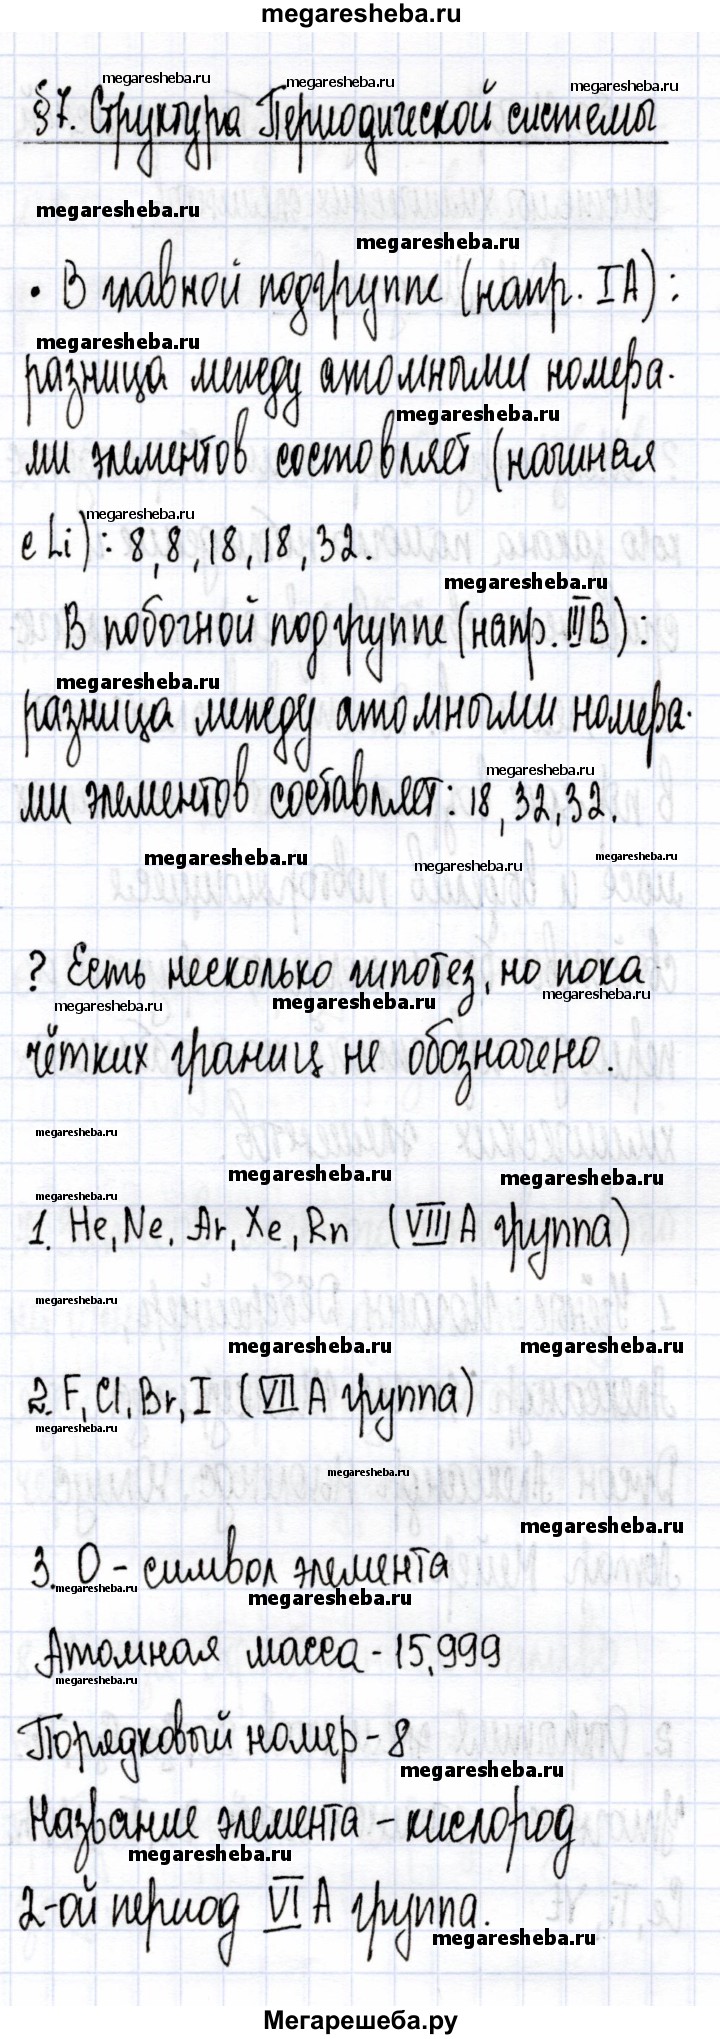 megaresheba.ru
megaresheba.ru megaresheba.ru megaresheba.ru
§7. Структура Периодической системы
megaresheba.ru
megaresheba.ru
• В главной подгруппе (напр. IA):
megaresheba.ru
разница между атомными номера-
megaresheba.ru
ми элементов состовляет (начиная
megaresheba.ru
с Li): 8, 8, 18, 18, 32.
megaresheba.ru
В побочной подгруппе (напр. III B):
megaresheba.ru
разница между атомными номера-
megaresheba.ru
ми элементов составляет: 18, 32, 32.
megaresheba.ru megaresheba.ru megaresheba.ru
? Есть несколько гипотез, но пока
megaresheba.ru megaresheba.ru megaresheba.ru
чётких границ не обозначено.
megaresheba.ru
megaresheba.ru megaresheba.ru
megaresheba.ru
1. He, Ne, Ar, Xe, Rn (VIII A группа)
megaresheba.ru
megaresheba.ru megaresheba.ru
2. F, Cl, Br, I (VII A группа)
megaresheba.ru
megaresheba.ru
megaresheba.ru
3. O - символ элемента
megaresheba.ru megaresheba.ru
Атомная масса - 15,999
megaresheba.ru
Порядковый номер - 8
megaresheba.ru
Название элемента - кислород
megaresheba.ru
2-ой период VI A группа.
megaresheba.ru
Мегарешеба.ру